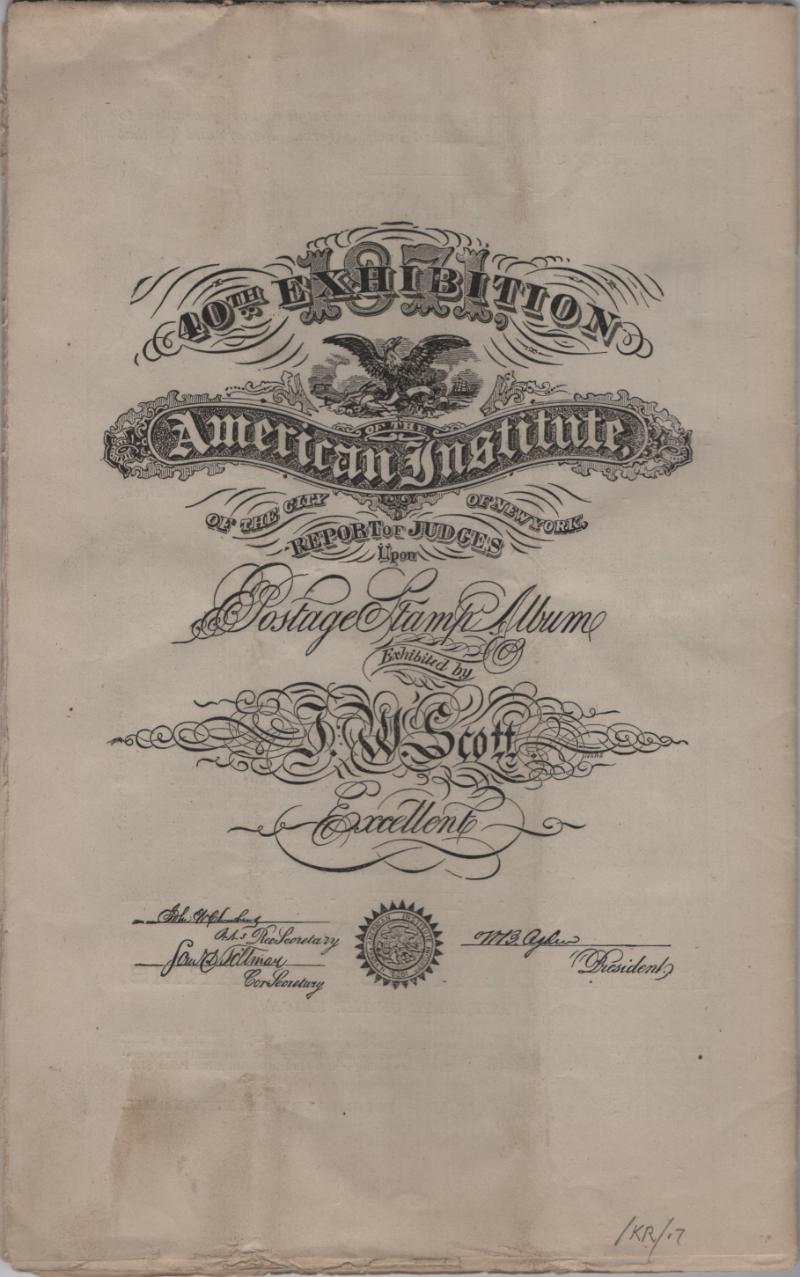 1871,
40TH EXHIBITION
OF THE
American Institute,
OF THE CITY OF NEW YORK.
REPORT OF JUDGES
Upon
Postage Stamp Album
Exhibited by
J. W. Scott
Excellent
Rec Secretary
Sam D. Tillman
Cor Secretary
President
/KR/17